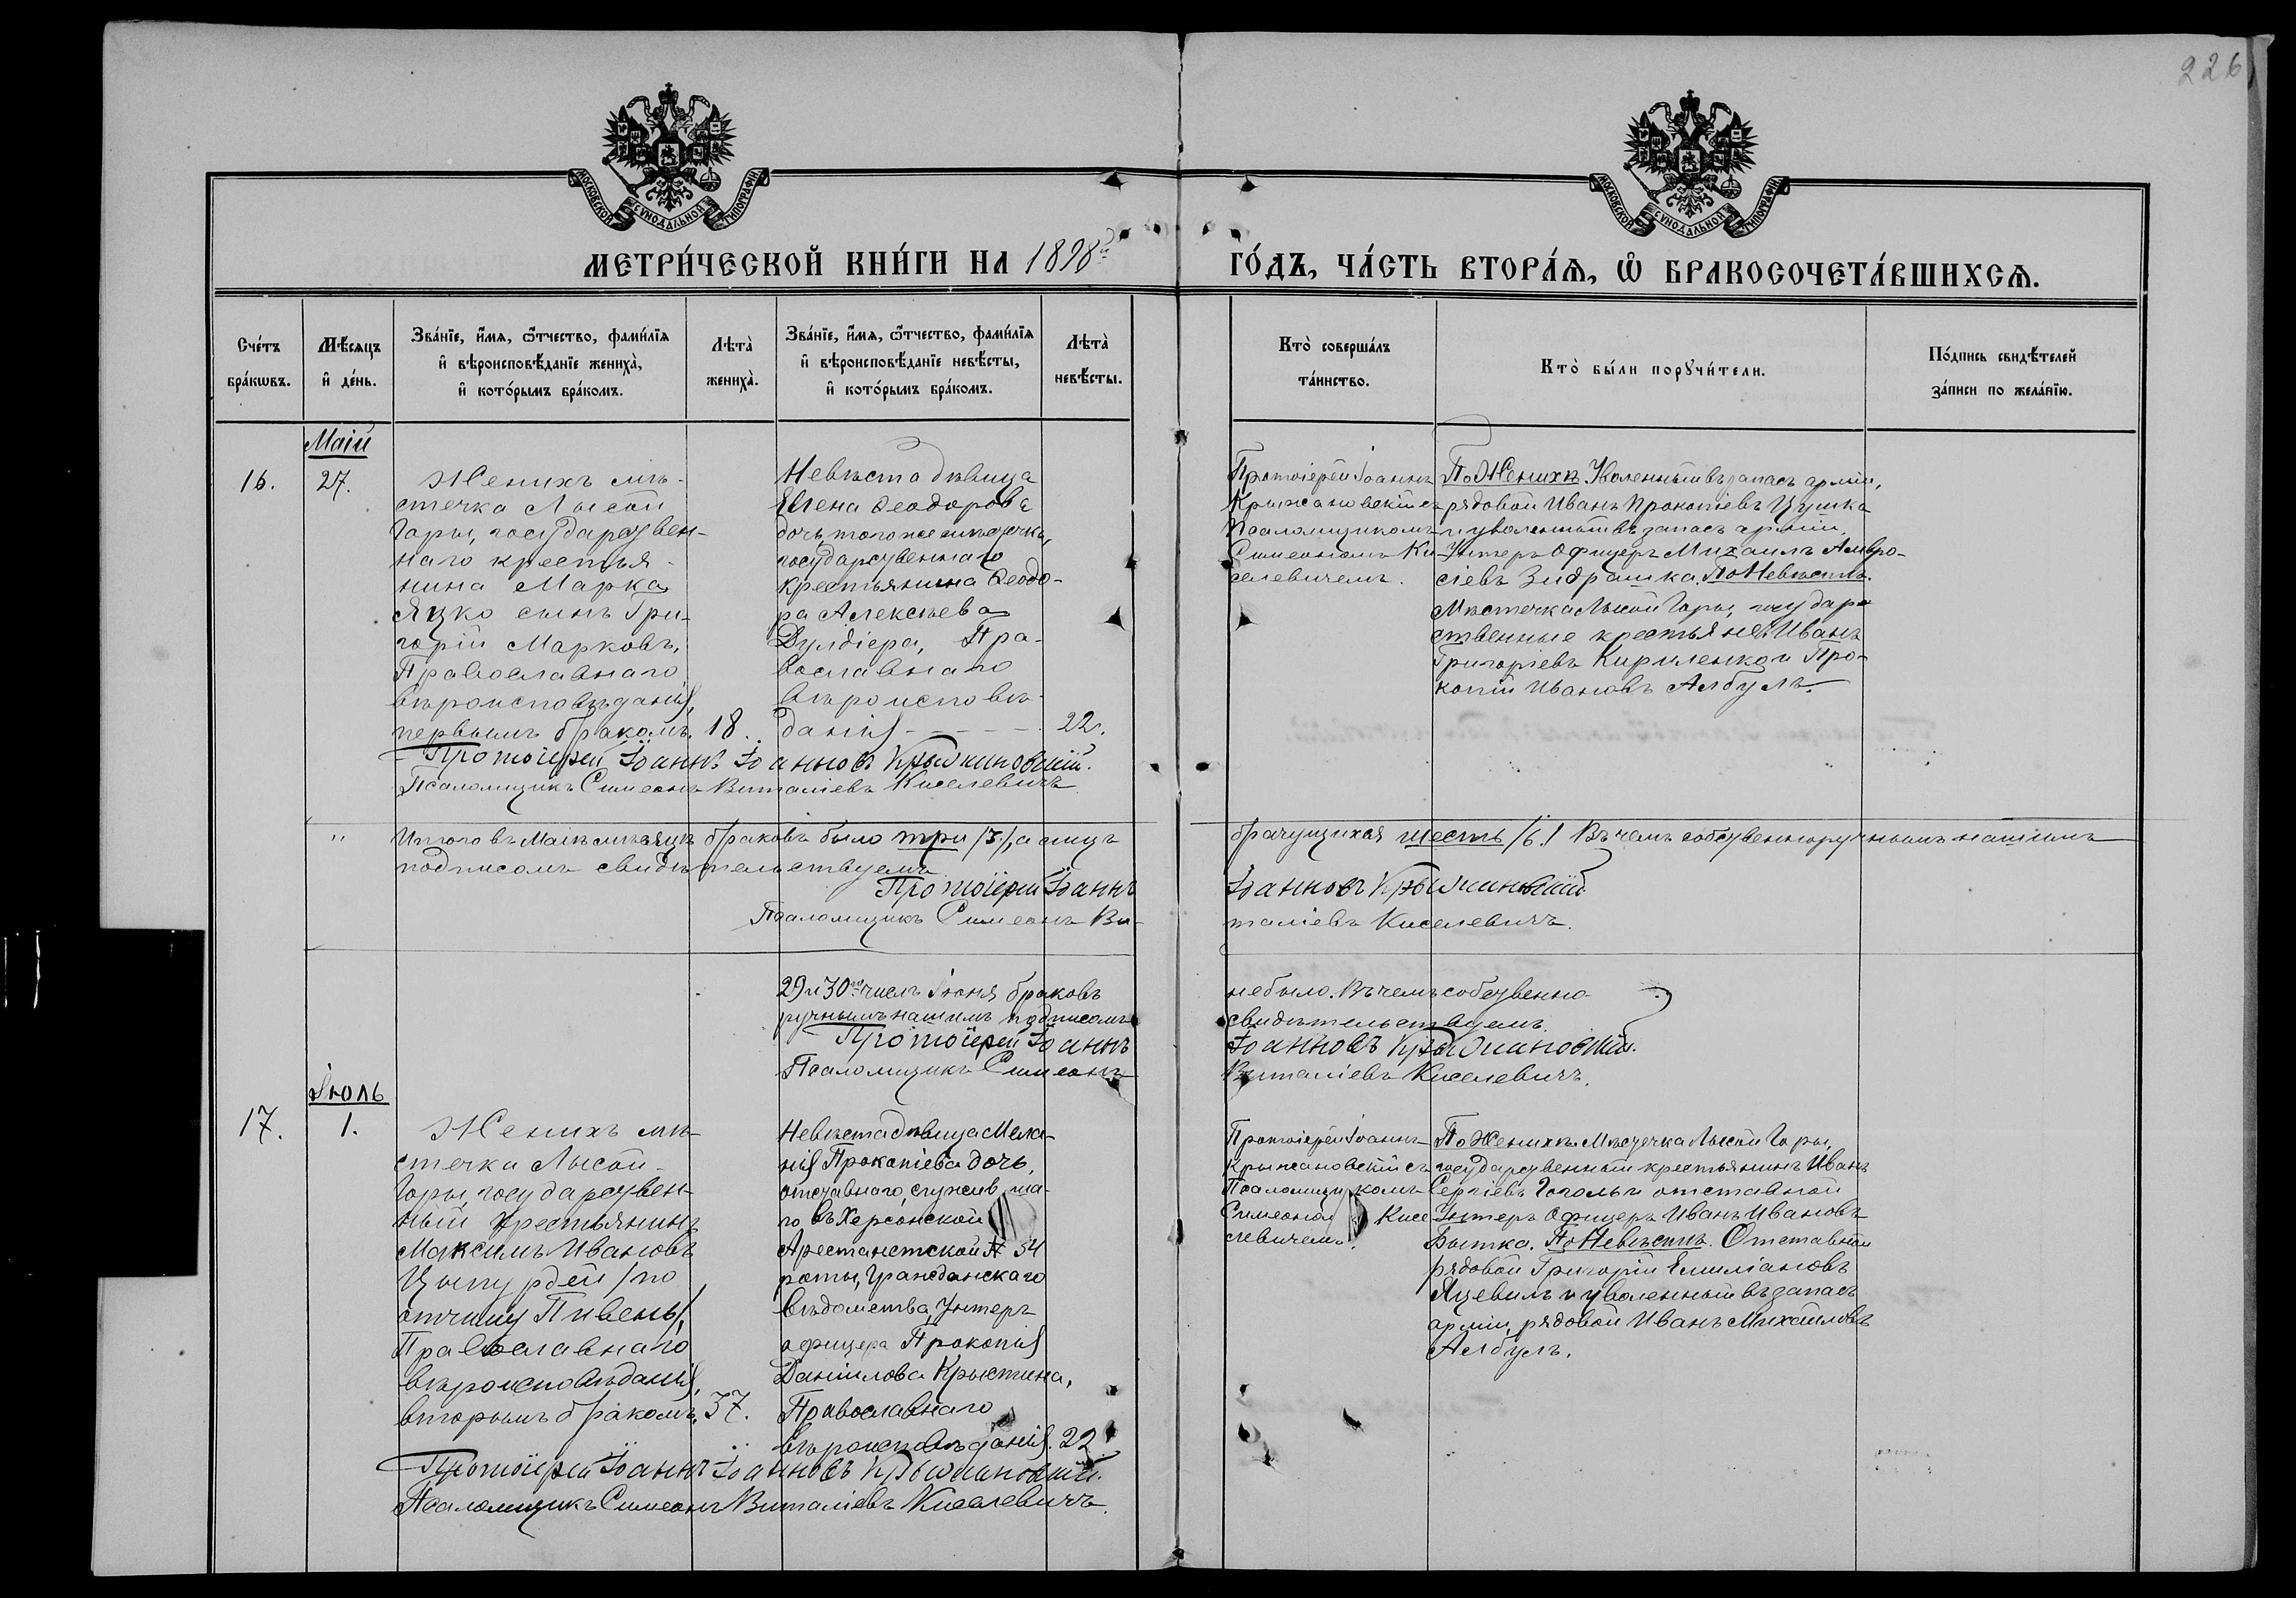 226
МОСКОВСКОЙ СѴНОДАЛЬНОЙ ТИПОГРАФІИ
МОСКОВСКОЙ СѴНОДАЛЬНОЙ ТИПОГРАФІИ
МЕТРИ́ЧЕСКОЙ КНИ́ГИ НА 1898й
ГО́ДЪ, ЧА́СТЬ ВТОРА́Ѧ, Ѽ БРАКОСОЧЕТА́ВШИХСѦ.
Сче́тъ
бра́кѡвъ.
Мѣ́сяцъ
и҆ де́нь.
Зва́нїе, и҆́мѧ, ѻ҆́тчество, фами́лїѧ
и҆ вѣроисповѣ́данїе жениха̀,
и҆ кото́рымъ бра́комъ.
Лѣта̀
жениха̀.
Зва́нїе, и҆́мѧ, ѻ҆́тчество, фами́лїѧ
и҆ вѣроисповѣ́данїе невѣ́сты,
и҆ кото́рымъ бра́комъ.
Лѣта̀
невѣ́сты.
Кто̀ соверша́лъ
та́инство.
Кто̀ бы́ли порꙋчи́тели.
По́дпись свидѣ́телей
за́писи по жела́нїю.
Маій
16.
27.
Женихъ мѣ-
стечка Лысой
Горы, государствен-
наго крестья-
нина Марка
Яцко сынъ Гри-
горій Марковъ,
Православнаго
вѣроисповѣданія,
первымъ бракомъ.
18.
Невѣста дѣвица
Елена Ѳеодорова
дочь, того же мѣстечка,
государственнаго
крестьянина Ѳеодо-
ра Алексѣева
Дулдіера, Пра-
вославнаго
вѣроисповѣ-
данія
22.
Протоіерей Іоаннъ
Крыжановскій съ
Псаломщикомъ
Симеономъ Ки-
селевичемъ.
По Женихѣ Уволенный въ запасъ арміи,
рядовой Иванъ Прокопіевъ Цушка
и уволенный въ запасъ арміи,
Унтеръ Офицеръ Михаилъ Амвро-
сіевъ Зидрашка. По Невѣстѣ.
Мѣстечка Лысой Горы, государ-
ственные крестьяне: Иванъ
Григоріевъ Кириленко и Про-
копій Ивановъ Албулъ.
Протоіерей Іоаннъ Іоанновъ Крыжановскій.
Псаломщикъ Симеонъ Виталіевъ Киселевичъ
"
Итого въ Маіѣ мѣсяцѣ браковъ было три /3/, а лицъ
брачущихся шесть /6./ Въ чемъ собственноручнымъ нашимъ
подписомъ свидѣтельствуемъ
Протоіерей Іоаннъ
Іоанновъ Крыжановскій
Псаломщикъ Симеонъ Ви-
таліевъ Киселевичъ.
29 и 30го числъ Іюня браковъ
не было. Въ чемъ собственно-
ручнымъ нашимъ подписомъ
свидѣтельствуемъ.
Протоіерей Іоаннъ
Іоанновъ Крыжановскій.
Псаломщикъ Симеонъ
Виталіевъ Киселевичъ.
Іюль
17.
1.
Женихъ мѣ-
стечка Лысой
Горы, государствен-
ный крестьянинъ
Максимъ Ивановъ
Цыпурдей /по
отчиму Пивень/,
Православнаго
вѣроисповѣданія,
вторымъ бракомъ.
37.
Невѣста дѣвица Мела-
нія Прокопіева дочь,
отставнаго, служивша-
го въ Херсонской
Арестантской № 54
роты, Гражданскаго
вѣдомства, Унтеръ
офицера Прокопія
Даніилова Крыстина,
Православнаго
вѣроисповѣданія.
22.
Протоіерей Іоаннъ
Крыжановскій съ
Псаломщикомъ
Симеоном Кисе-
левичемъ.
По Женихѣ. Мѣстечка Лысой Горы,
государственный крестьянинъ Иванъ
Сергіевъ Гоголь и отставной
Унтеръ Офицеръ Иванъ Ивановъ
Бытка. По Невѣстѣ. Отставной
рядовой Григорій Емиліановъ
Яцевилъ и уволенный въ запасъ
арміи, рядовой Иванъ Михайловъ
Албулъ.
Протоіерей Іоаннъ Іоанновъ Крыжановскій.
Псаломщикъ Симеонъ Виталіевъ Киселевичъ.